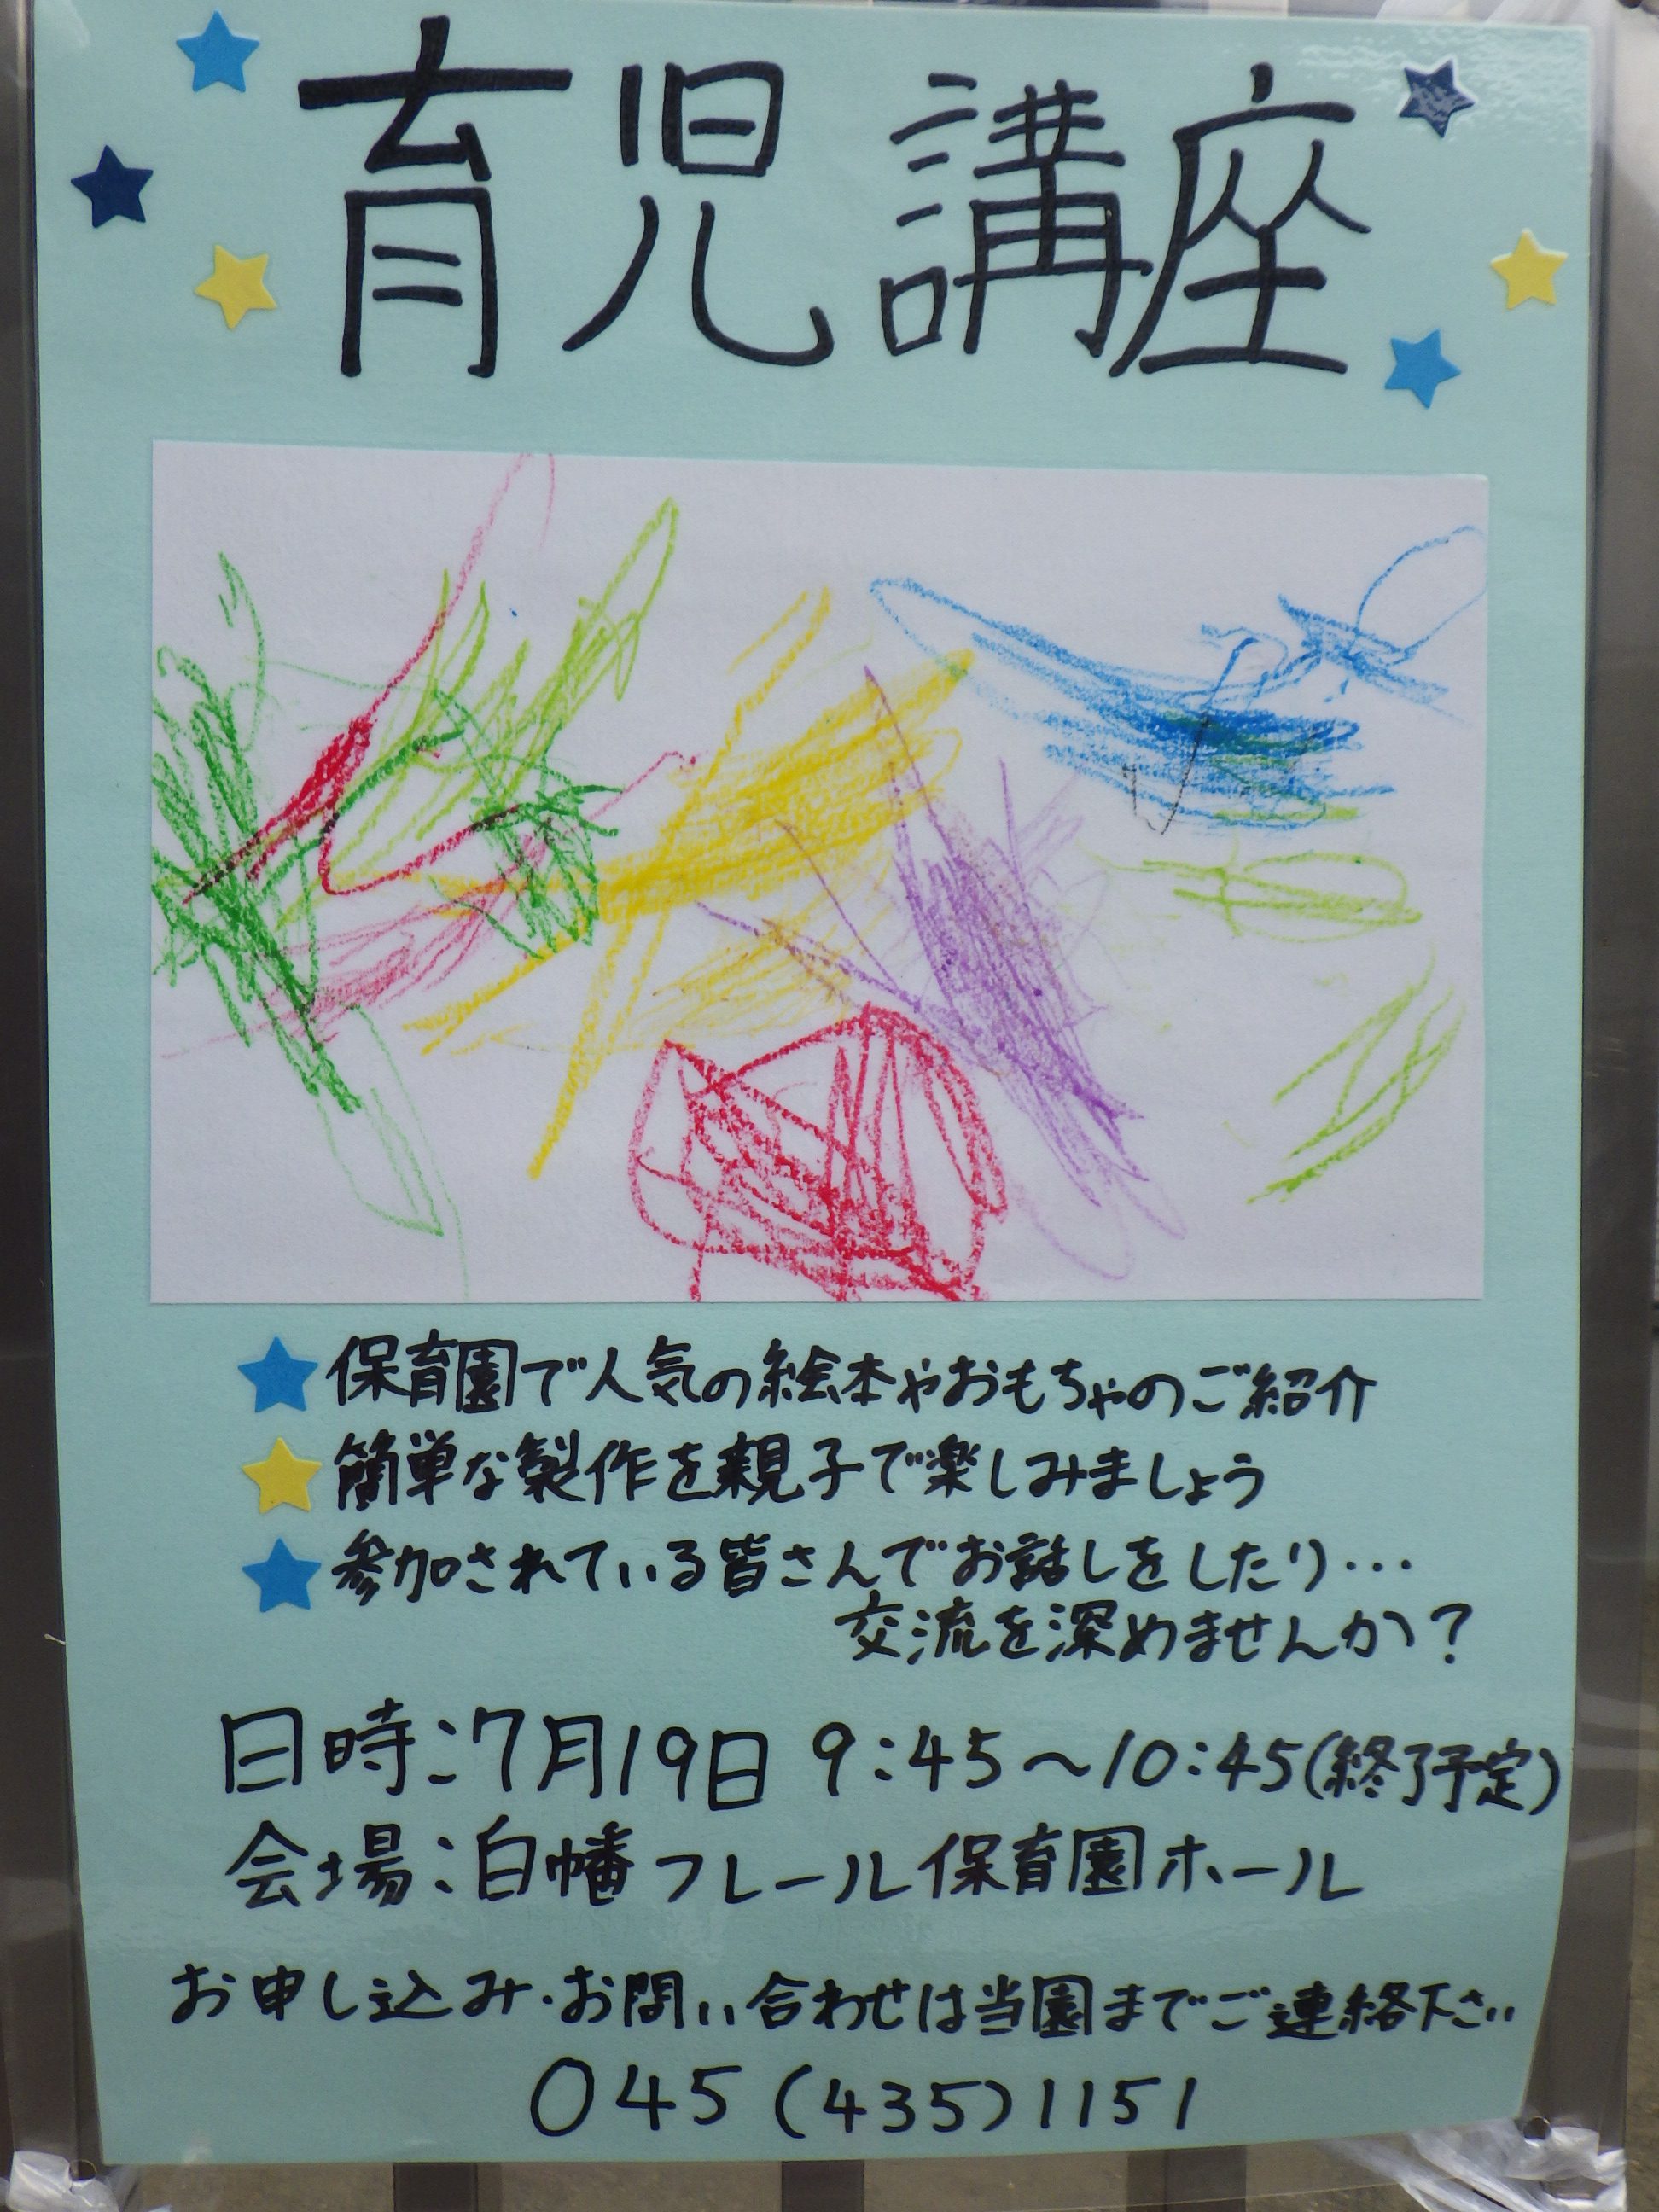 育児講座
保育園で人気の絵本やおもちゃのご紹介
簡単な製作を親子で楽しみましょう
参加されている皆さんでお話しをしたり・・・
交流を深めませんか？
日時：7月19日 9：45～10：45（終了予定）
会場：白幡フレール保育園ホール
お申し込み・お問い合わせは当園までご連絡下さい
045（435）1151